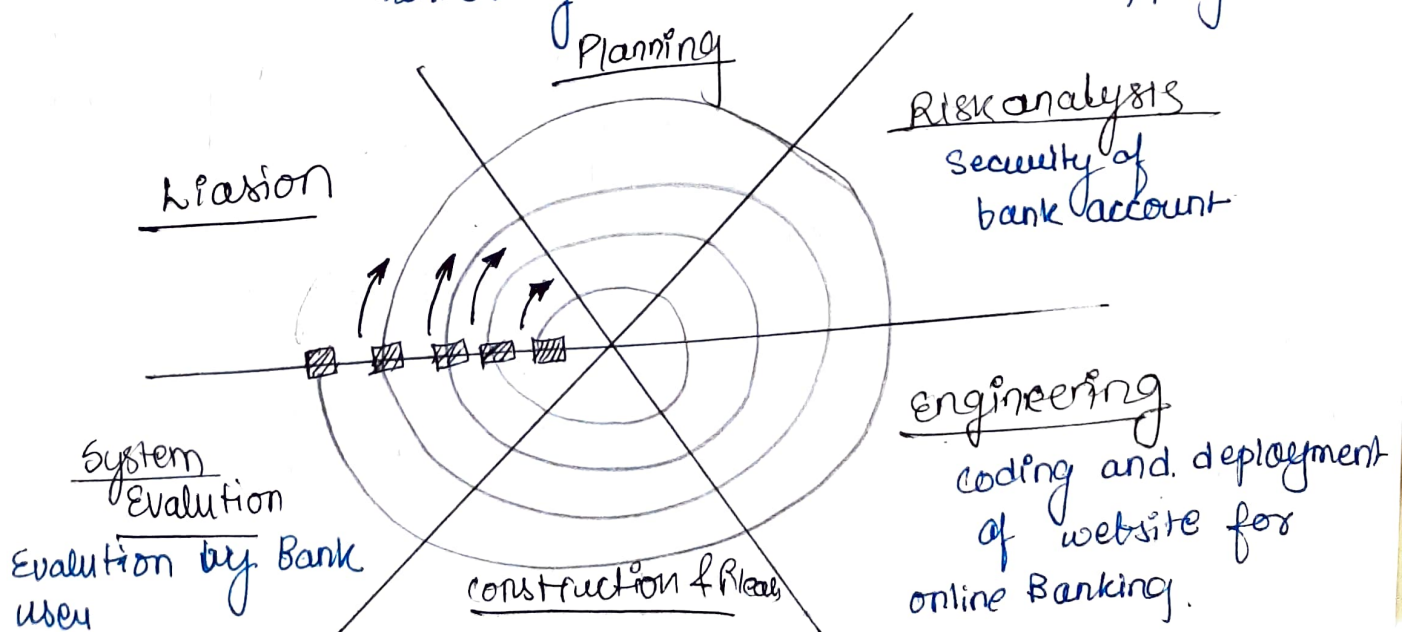 Planning
Riskanalysis
Security of
bank account
Liasion
Engineering
coding and. deployment
of website for
online Banking.
System
Evalution
Evalution by Bank
user
construction &